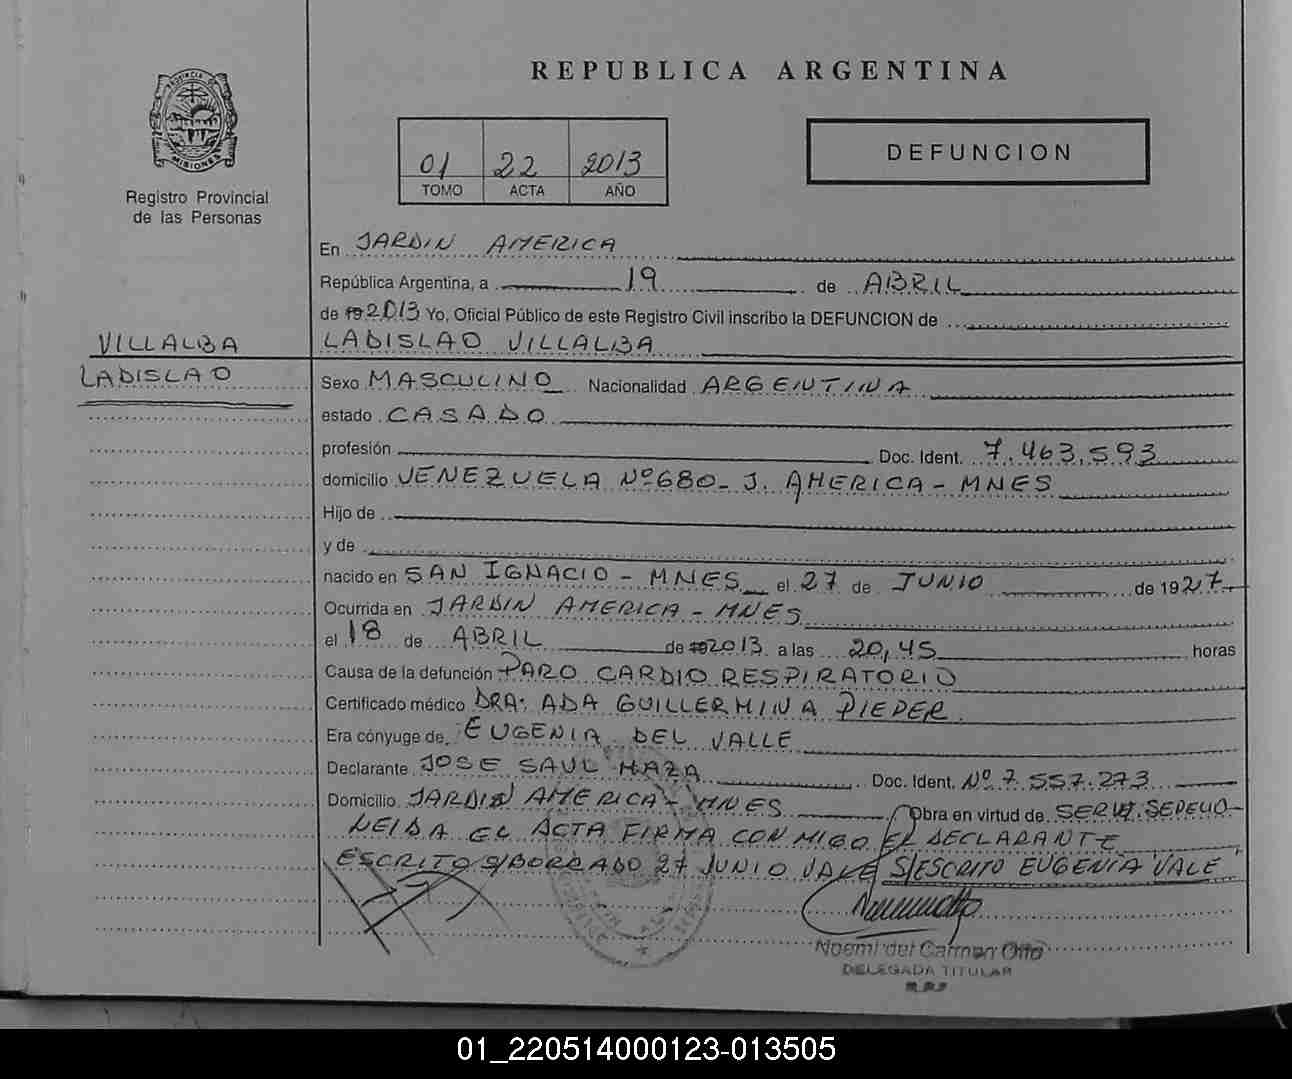 REPUBLICA ARGENTINA
PROVINCIA DE
MISIONES
Registro Provincial
de las Personas
01 22 2013
TOMO ACTA AÑO
DEFUNCION
En JARDIN AMERICA
República Argentina, a 19 de ABRIL
de 19 2013 Yo, Oficial Público de este Registro Civil inscribo la DEFUNCION de
VILLALBA
LADISLAO VILLALBA
LADISLAO
Sexo MASCULINO Nacionalidad ARGENTINA
estado CASADO
profesión Doc. Ident. 7.463.593
domicilio VENEZUELA Nº 680 - J. AMERICA - MNES
Hijo de
y de
nacido en SAN IGNACIO - MNES el 27 de JUNIO de 1927
Ocurrida en JARDIN AMERICA - MNES
el 18 de ABRIL de 19 2013 a las 20,45 horas
Causa de la defunción PARO CARDIO RESPIRATORIO
Certificado médico DRA. ADA GUILLERMINA PIEPER
Era cónyuge de EUGENIA DEL VALLE
Declarante JOSE SAUL MAZA Doc. Ident. Nº 7.557.273
Domicilio JARDIN AMERICA - MNES Obra en virtud de SERV. SEPELIO -
LEIDA EL ACTA FIRMA CONMIGO EL DECLARANTE
ESCRITO S/BORRADO 27 JUNIO VALE S/ESCRITO EUGENIA VALE
Noemi del Carmen Otto
DELEGADA TITULAR
01_220514000123-013505